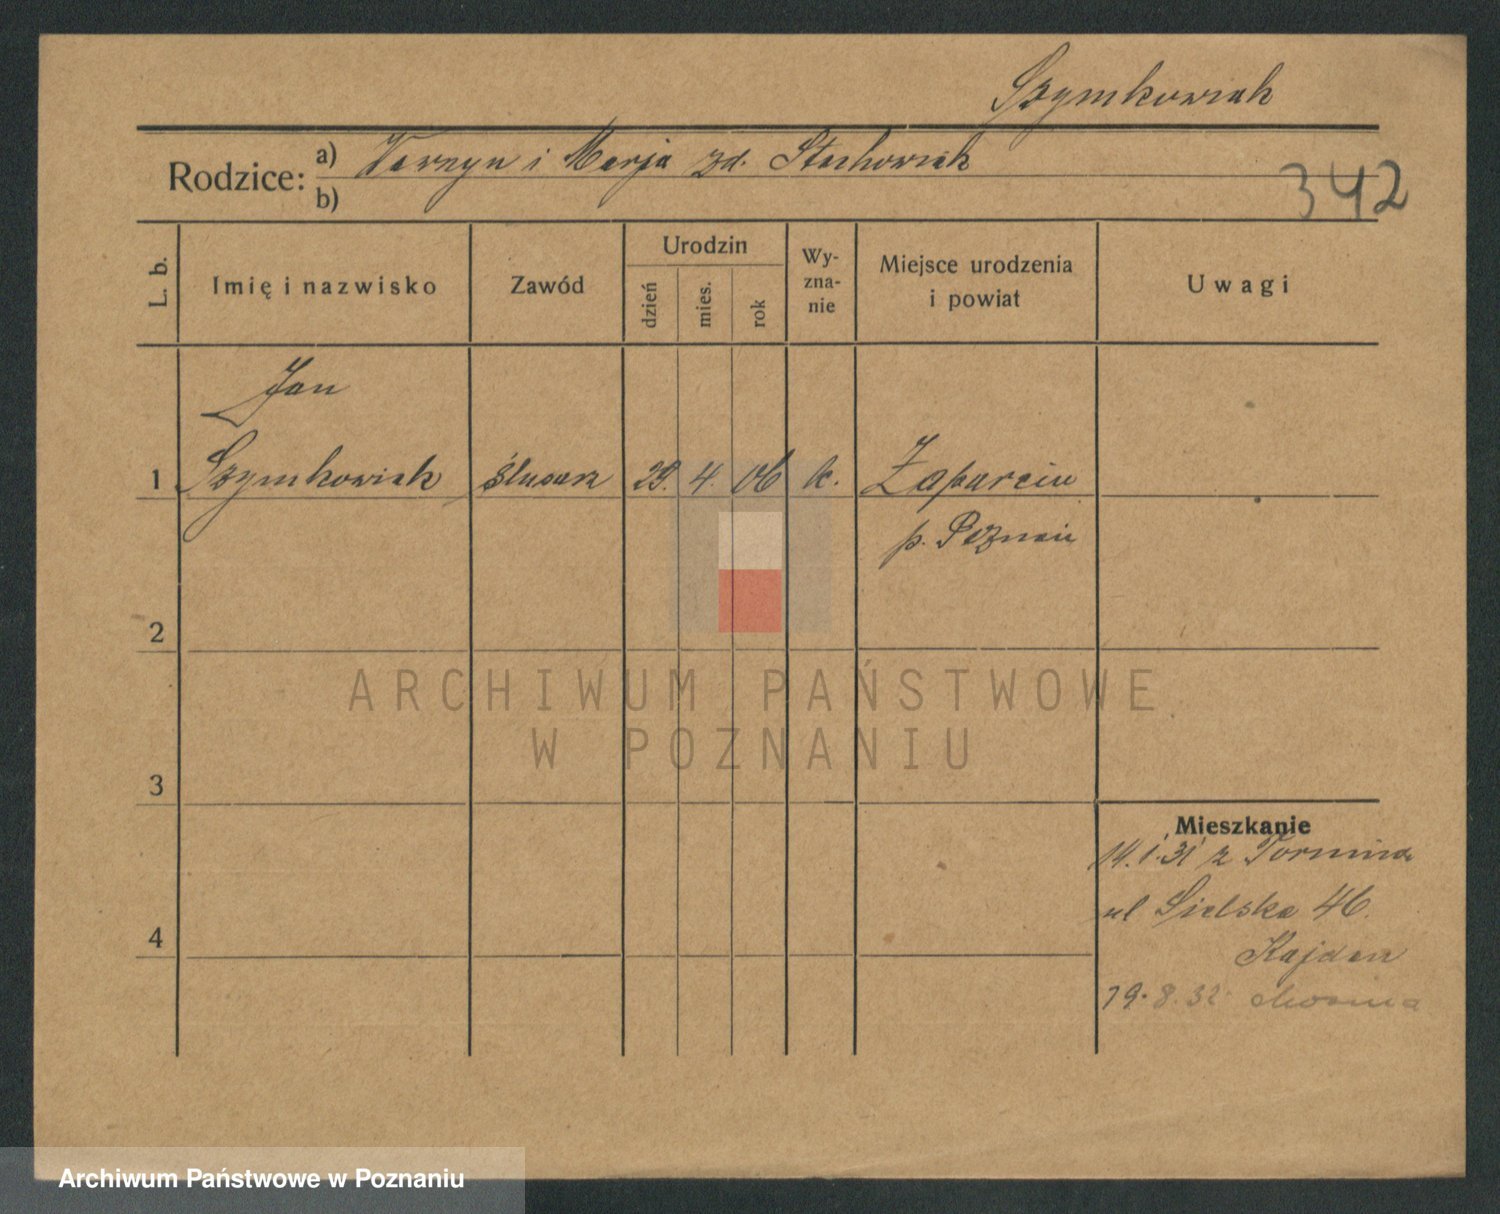 Szymkowiak
Rodzice: a) Wawrzyn i Marja zd. Stachowiak
b)
342
L. b.
Imię i nazwisko
Zawód
Urodzin
dzień
mies.
rok
Wy-
zna-
nie
Miejsce urodzenia
i powiat
Uwagi
Jan
1 Szymkowiak ślusarz 29. 4. 06 k.
p. Poznań
2
ARCHIWUM PAŃSTWOWE
W POZNANIU
3
Mieszkanie
14.1.31 z
ul Sielska 46.
Kajdan
4
19.8.32
Archiwum Państwowe w Poznaniu